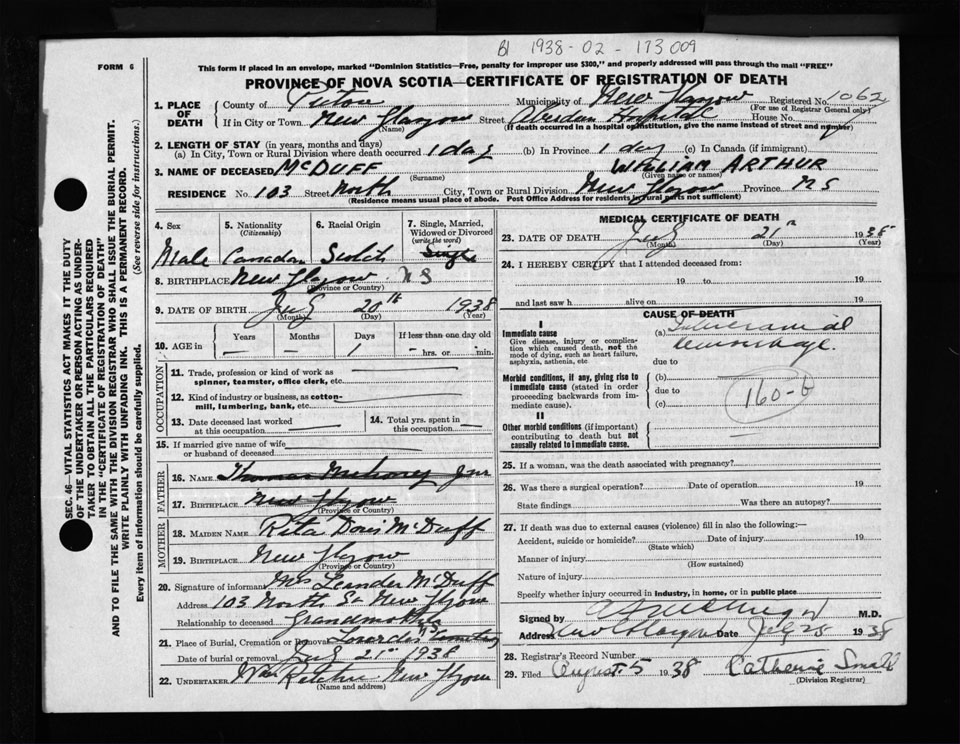 B1 1938 - 02 - 173009
FORM 6
This form if placed in an envelope, marked "Dominion Statistics—Free, penalty for improper use $300," and properly addressed will pass through the mail "FREE"
PROVINCE OF NOVA SCOTIA—CERTIFICATE OF REGISTRATION OF DEATH
1. PLACE OF DEATH
County of Pictou Municipality of New Glasgow Registered No. 1062
(For use of Registrar General only)
If in City or Town New Glasgow Street Aberdeen Hospital House No.
(Name) (If death occurred in a hospital or institution, give the name instead of street and number)
2. LENGTH OF STAY (in years, months and days)
(a) In City, Town or Rural Division where death occurred 1 day (b) In Province 1 day (c) In Canada (if immigrant)
3. NAME OF DECEASED McDUFF WILLIAM ARTHUR
(Surname) (Given name or names)
RESIDENCE No. 103 Street North City, Town or Rural Division New Glasgow Province N S
(Residence means usual place of abode. Post Office Address for residents in rural parts not sufficient)
4. Sex 5. Nationality (Citizenship) 6. Racial Origin 7. Single, Married, Widowed or Divorced (write the word)
Male Canadian Scotch Single
8. BIRTHPLACE New Glasgow N S
(Province or Country)
9. DATE OF BIRTH July 20th 1938
(Month) (Day) (Year)
10. AGE in Years Months Days If less than one day old
— — 1 — hrs. or min.
OCCUPATION
11. Trade, profession or kind of work as spinner, teamster, office clerk, etc.
12. Kind of industry or business, as cotton-mill, lumbering, bank, etc.
13. Date deceased last worked at this occupation
14. Total yrs. spent in this occupation
15. If married give name of wife or husband of deceased
FATHER
16. NAME Thomas Mahoney Jnr
17. BIRTHPLACE New Glasgow
(Province or Country)
MOTHER
18. MAIDEN NAME Rita Doris McDuff
19. BIRTHPLACE New Glasgow
(Province or Country)
20. Signature of informant Mrs Leander McDuff
Address 103 North St New Glasgow
Relationship to deceased Grandmother
21. Place of Burial, Cremation or Removal Lourdes Cemetery
Date of burial or removal July 21st 1938
22. UNDERTAKER Wm Ritchie New Glasgow
(Name and address)
MEDICAL CERTIFICATE OF DEATH
23. DATE OF DEATH July 21st 1938
(Month) (Day) (Year)
24. I HEREBY CERTIFY that I attended deceased from:
19 to 19
and last saw h alive on 19
CAUSE OF DEATH
I
Immediate cause
Give disease, injury or complication which caused death, not the mode of dying, such as heart failure, asphyxia, asthenia, etc
(a) Intracranial
hemorrhage
due to
Morbid conditions, if any, giving rise to immediate cause (stated in order proceeding backwards from immediate cause).
(b)
due to
(c)
160-b
II
Other morbid conditions (if important) contributing to death but not causally related to immediate cause.
25. If a woman, was the death associated with pregnancy?
26. Was there a surgical operation? Date of operation 19
State findings Was there an autopsy?
27. If death was due to external causes (violence) fill in also the following:—
Accident, suicide or homicide? Date of injury 19
(State which)
Manner of injury
(How sustained)
Nature of injury
Specify whether injury occurred in Industry, in home, or in public place
Signed by M.D.
Address New Glasgow Date July 25 1938
28. Registrar's Record Number
29. Filed August 5 1938 Catherine Small
(Division Registrar)
SEC. 46—VITAL STATISTICS ACT MAKES IT THE DUTY OF THE UNDERTAKER OR PERSON ACTING AS UNDERTAKER TO OBTAIN ALL THE PARTICULARS REQUIRED IN THE "CERTIFICATE OF REGISTRATION OF DEATH" AND TO FILE THE SAME WITH THE DIVISION REGISTRAR WHO SHALL ISSUE THE BURIAL PERMIT.
WRITE PLAINLY WITH UNFADING INK. THIS IS A PERMANENT RECORD.
Every item of information should be carefully supplied. (See reverse side for instructions.)